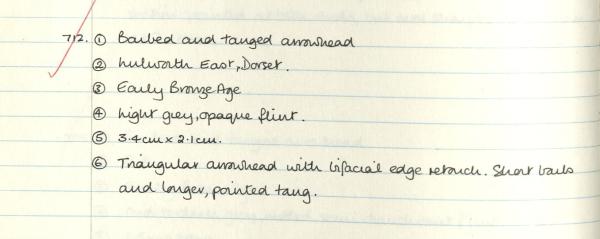 712. ① Barbed and tanged arrowhead
② Lulworth East, Dorset.
③ Early Bronze Age
④ Light grey, opaque flint.
⑤ 3.4cm x 2.1cm.
⑥ Triangular arrowhead with bifacial edge retouch. Short barbs
and longer, pointed tang.